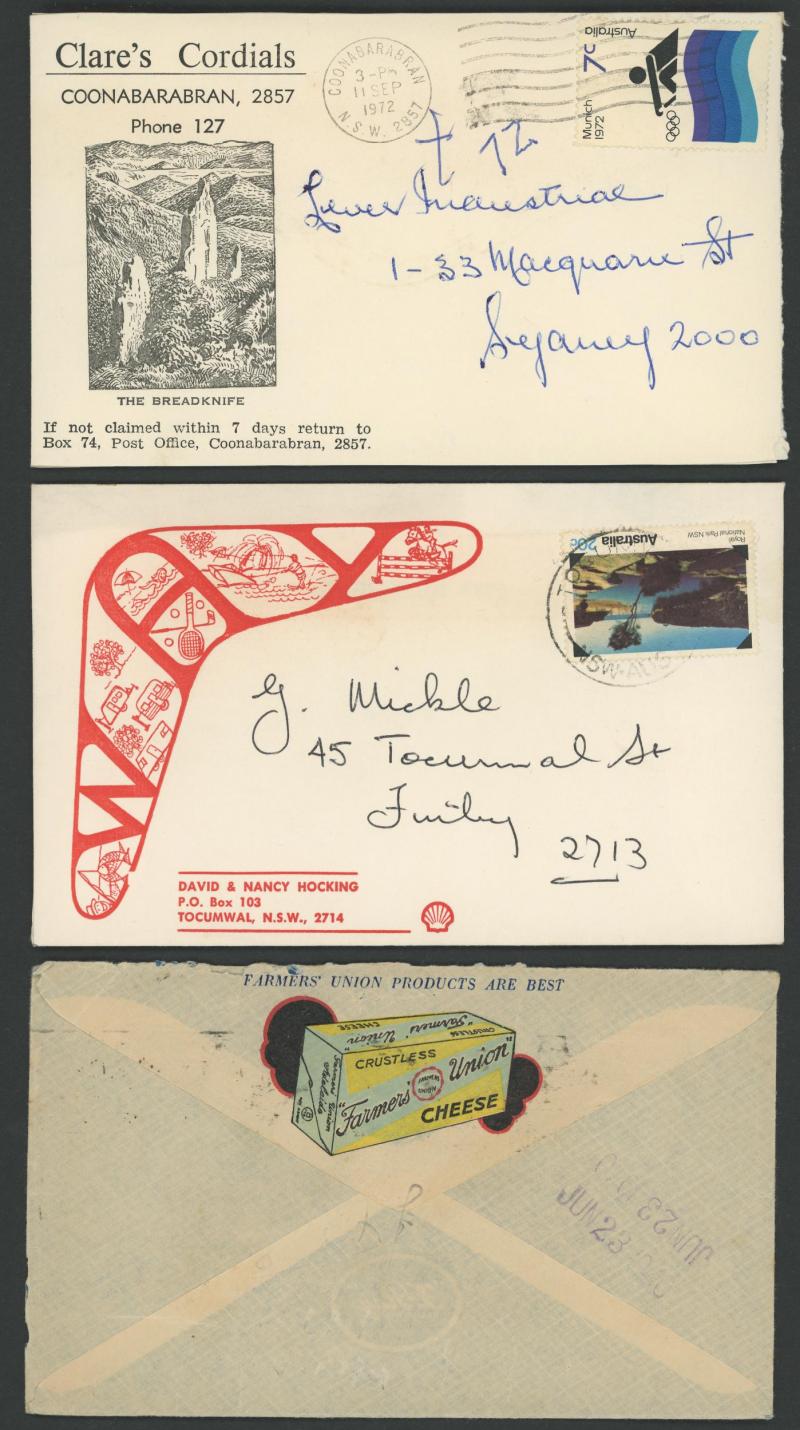 Clare's Cordials
COONABARABRAN, 2857
Phone 127
THE BREADKNIFE
If not claimed within 7 days return to
Box 74, Post Office, Coonabarabran, 2857.
COONABARABRAN
3-P
11 SEP
1972
N.S.W. 2857
Munich
1972
7c
Australia
Lever Industrial
1-33 Macquarie St
Sydney 2000
WAY
DAVID & NANCY HOCKING
P.O. Box 103
TOCUMWAL, N.S.W., 2714
20c
Australia
Royal
National Park NSW
NSW-AUS
G. Mickle
45 Tocumwal St
Finley
2713
FARMERS' UNION PRODUCTS ARE BEST
CRUSTLESS
"Farmers' Union"
CHEESE
"Farmers' Union"
CRUSTLESS
CHEESE
Farmers' Union
Adelaide
JUN 23
JUN 23